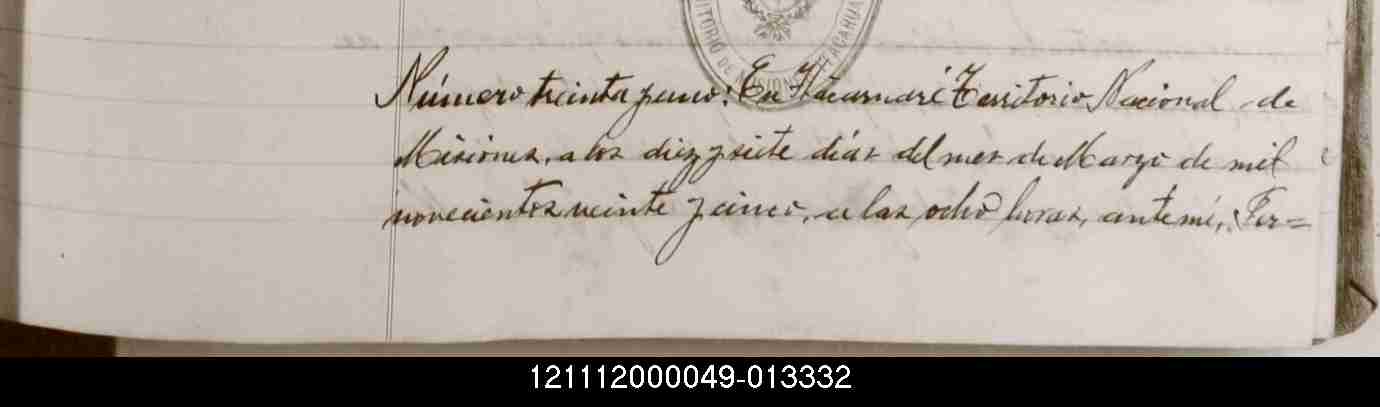 TERRITORIO DE MISIONES
Número treinta y uno: En Itacaruaré Territorio Nacional de
Misiones, a los diez y siete días del mes de Marzo de mil
novecientos veinte y cinco, a las ocho horas, ante mí, Fer=
121112000049-013332